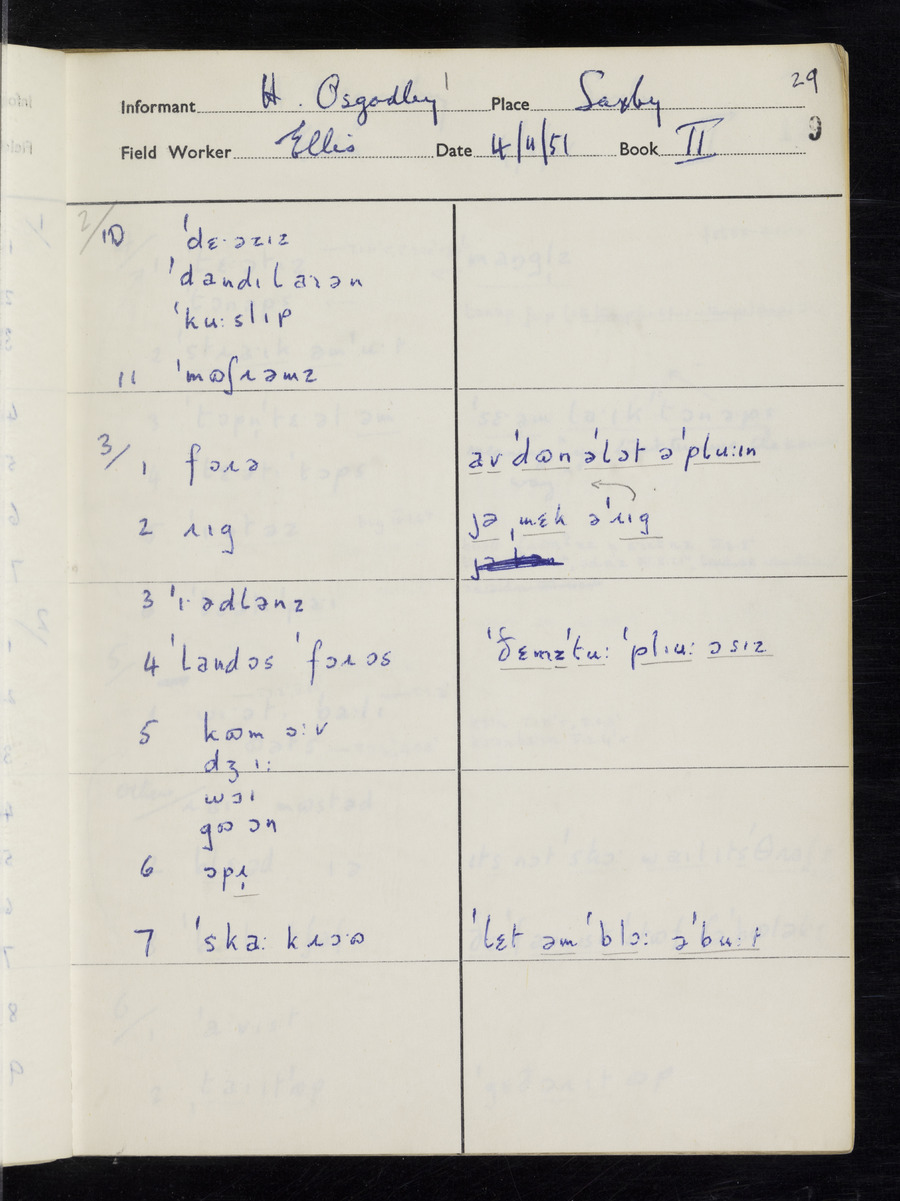 29
Informant H. Osgodley Place Saxby
9
Field Worker Ellis Date 4/11/51 Book II
2/ 10 ˈdɛ·əzɪz
ˈdandɪlaɪən
ˈku:slɪp
11 ˈmɷʃɹəmz
3/ 1 fɔɹə av ˈdɷn əˈlɔt əˈplu:ɪn
2 ɹɪg jə ˌmɛk əˈɹɪg
3 ˈɪ·ədlənz
4 ˈlandɔs ˈfɔɹɔs ˈðɛmzˈtu: ˈplɪu: ɔsɪz
5 kɷm ɔ:v
dʒɪ:
wɔɪ
gɷ ɔn
6 ɔpɪ
7 ˈska: kɹɔ·ɷ ˈlɛt əm ˈblɔ: əˈbu:t